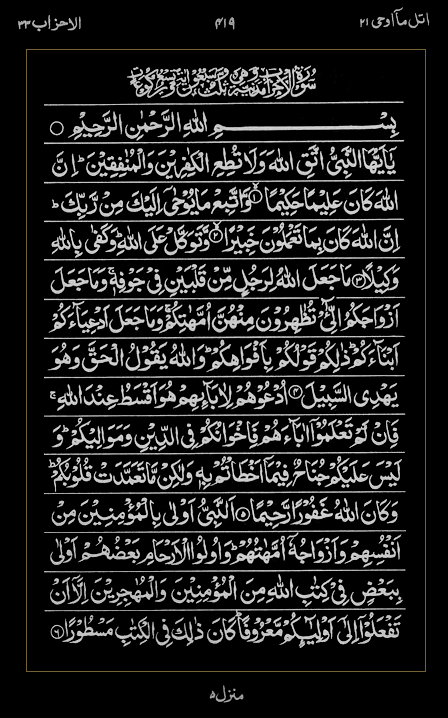 اتل مآ اوحی ۲۱
۴۱۹
الاحزاب ۳۳
بِسْمِ اللهِ الرَّحْمٰنِ الرَّحِيْمِ
يٰۤاَيُّهَا النَّبِيُّ اتَّقِ اللهَ وَلَا تُطِعِ الْكٰفِرِيْنَ وَالْمُنٰفِقِيْنَ ؕ اِنَّ
اللهَ كَانَ عَلِيْمًا حَكِيْمًا ۙ۱ وَّاتَّبِعْ مَا يُوْحٰۤى اِلَيْكَ مِنْ رَّبِّكَ ؕ
اِنَّ اللهَ كَانَ بِمَا تَعْمَلُوْنَ خَبِيْرًا ۙ۲ وَّتَوَكَّلْ عَلَى اللهِ ؕ وَكَفٰى بِاللهِ
وَكِيْلًا ۳ مَا جَعَلَ اللهُ لِرَجُلٍ مِّنْ قَلْبَيْنِ فِيْ جَوْفِهٖ ۚ وَمَا جَعَلَ
اَزْوَاجَكُمُ الّٰٓـِٔيْ تُظٰهِرُوْنَ مِنْهُنَّ اُمَّهٰتِكُمْ ۚ وَمَا جَعَلَ اَدْعِيَآءَكُمْ
اَبْنَآءَكُمْ ؕ ذٰلِكُمْ قَوْلُكُمْ بِاَفْوَاهِكُمْ ؕ وَاللهُ يَقُوْلُ الْحَقَّ وَهُوَ
يَهْدِى السَّبِيْلَ ۴ اُدْعُوْهُمْ لِاٰبَآئِهِمْ هُوَ اَقْسَطُ عِنْدَ اللهِ ۚ
فَاِنْ لَّمْ تَعْلَمُوْۤا اٰبَآءَهُمْ فَاِخْوَانُكُمْ فِى الدِّيْنِ وَمَوَالِيْكُمْ ؕ وَ
لَيْسَ عَلَيْكُمْ جُنَاحٌ فِيْمَاۤ اَخْطَاْتُمْ بِهٖ ۙ وَلٰكِنْ مَّا تَعَمَّدَتْ قُلُوْبُكُمْ ؕ
وَكَانَ اللهُ غَفُوْرًا رَّحِيْمًا ۵ اَلنَّبِيُّ اَوْلٰى بِالْمُؤْمِنِيْنَ مِنْ
اَنْفُسِهِمْ وَاَزْوَاجُهٗۤ اُمَّهٰتُهُمْ ؕ وَاُولُوا الْاَرْحَامِ بَعْضُهُمْ اَوْلٰى
بِبَعْضٍ فِيْ كِتٰبِ اللهِ مِنَ الْمُؤْمِنِيْنَ وَالْمُهٰجِرِيْنَ اِلَّاۤ اَنْ
تَفْعَلُوْۤا اِلٰۤى اَوْلِيٰٓئِكُمْ مَّعْرُوْفًا ؕ كَانَ ذٰلِكَ فِى الْكِتٰبِ مَسْطُوْرًا ۶
منزل ۵